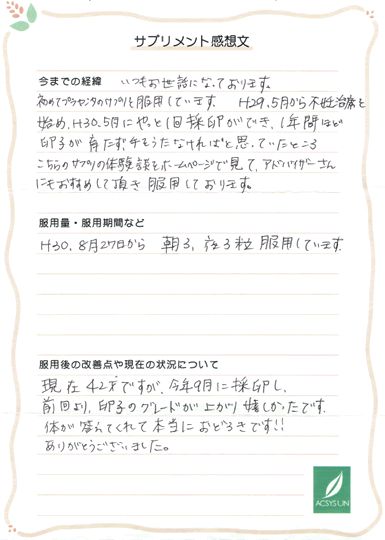 サプリメント感想文
今までの経緯 いつもお世話になっております。
初めてプラセンタのサプリを服用しています。 H29.5月から不妊治療を
始め、H30.5月にやっと1回採卵ができ、1年間ほど
卵子が育たずどうなければと思っていたところ
こちらのサプリの体験談をホームページで見て、アドバイザーさん
にもおすすめして頂き服用しております。
服用量・服用期間など
H30.8月27日から 朝3、夜3粒 服用しています。
服用後の改善点や現在の状況について
現在42才ですが、今年9月に採卵し、
前回より、卵子のグレードが上がり嬉しかったです。
体が答えてくれて本当におどろきです!!
ありがとうございました。
ACSYS UN